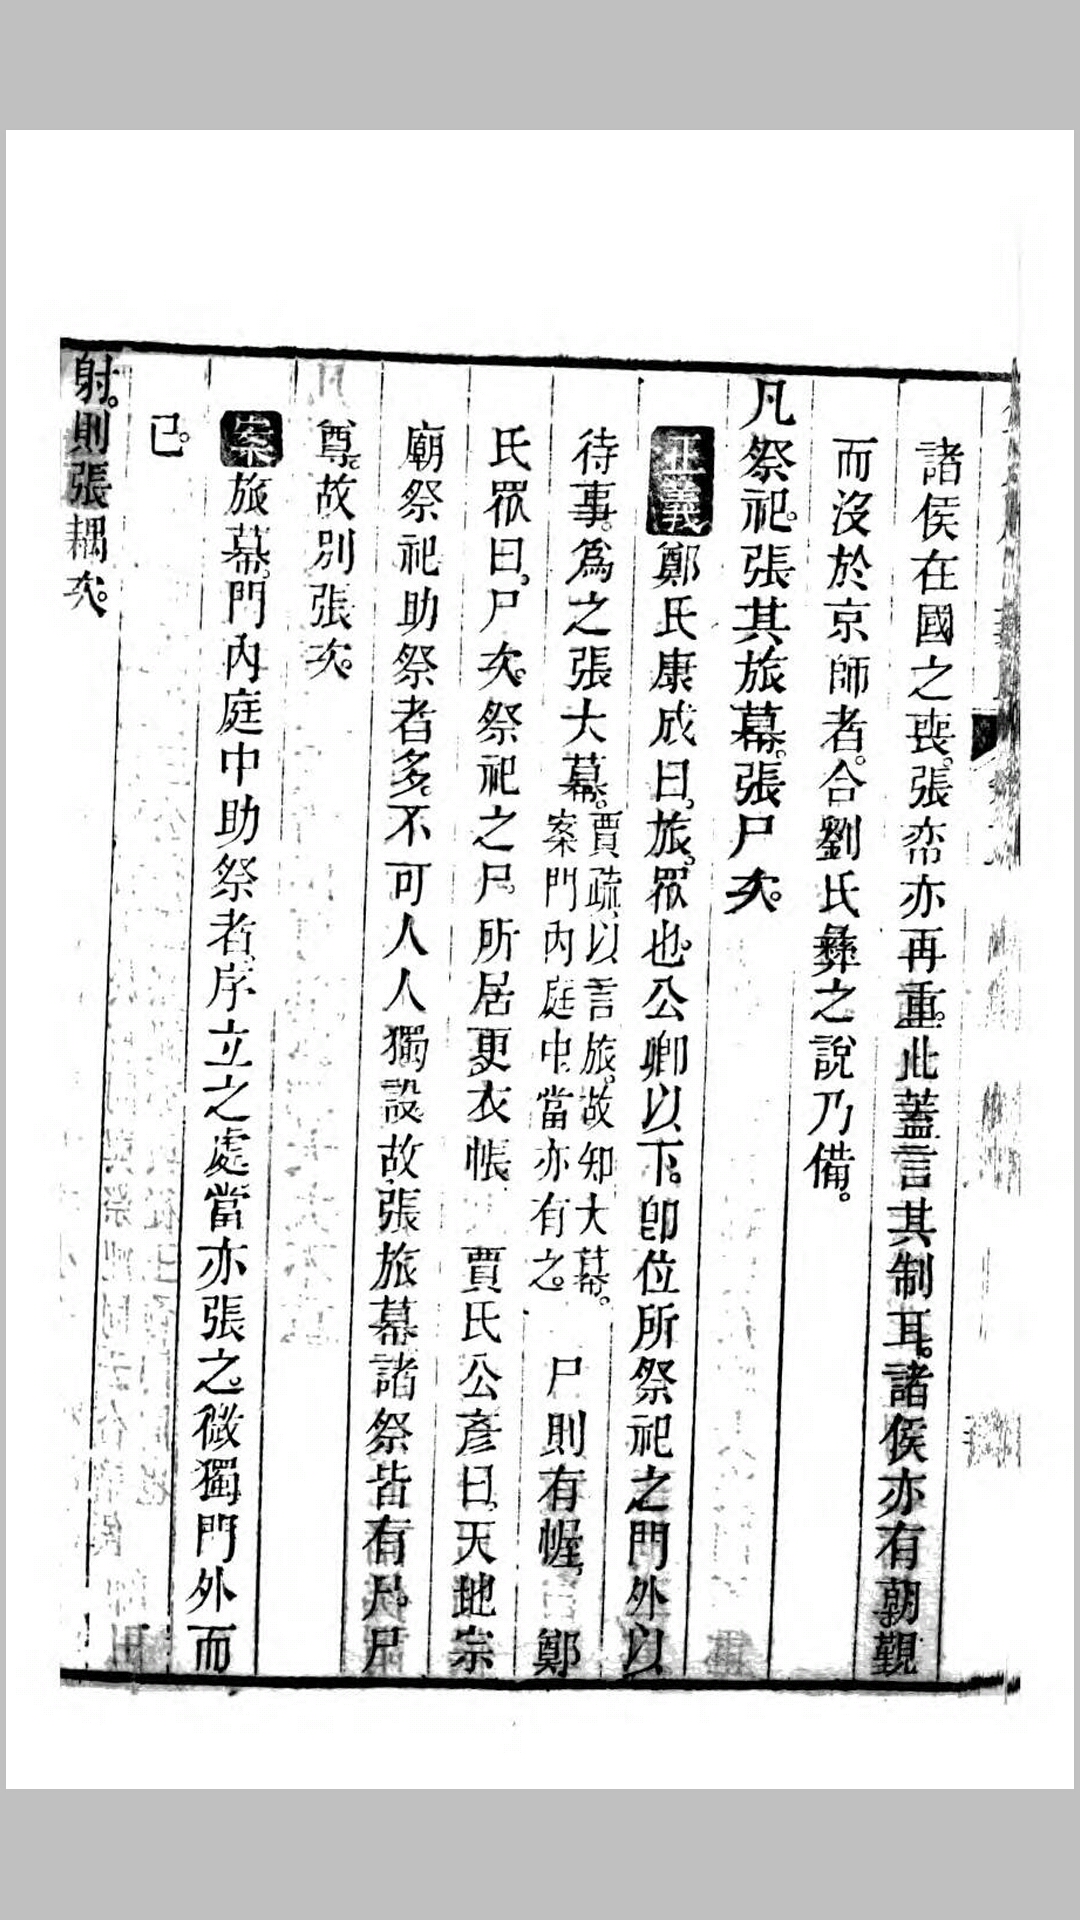 諸侯在國之喪。張帟亦再重。此蓋言其制耳。諸侯亦有朝覲
而沒於京師者。合劉氏彝之說乃備。
凡祭祀。張其旅幕。張尸次。
正義鄭氏康成曰。旅。眾也。公卿以下。卽位所祭祀之門外以
待事。爲之張大幕。賈疏。以言旅。故知大幕。案門內庭中。當亦有之。 尸則有幄。 鄭
氏眾曰。尸次。祭祀之尸。所居更衣帳 賈氏公彥曰。天地宗
廟祭祀助祭者多。不可人人獨設。故張旅幕諸祭皆有尸。尸
尊。故別張次。
案旅幕。門內庭中助祭者。序立之處當亦張之。微獨門外而
已。
射。則張耦次。